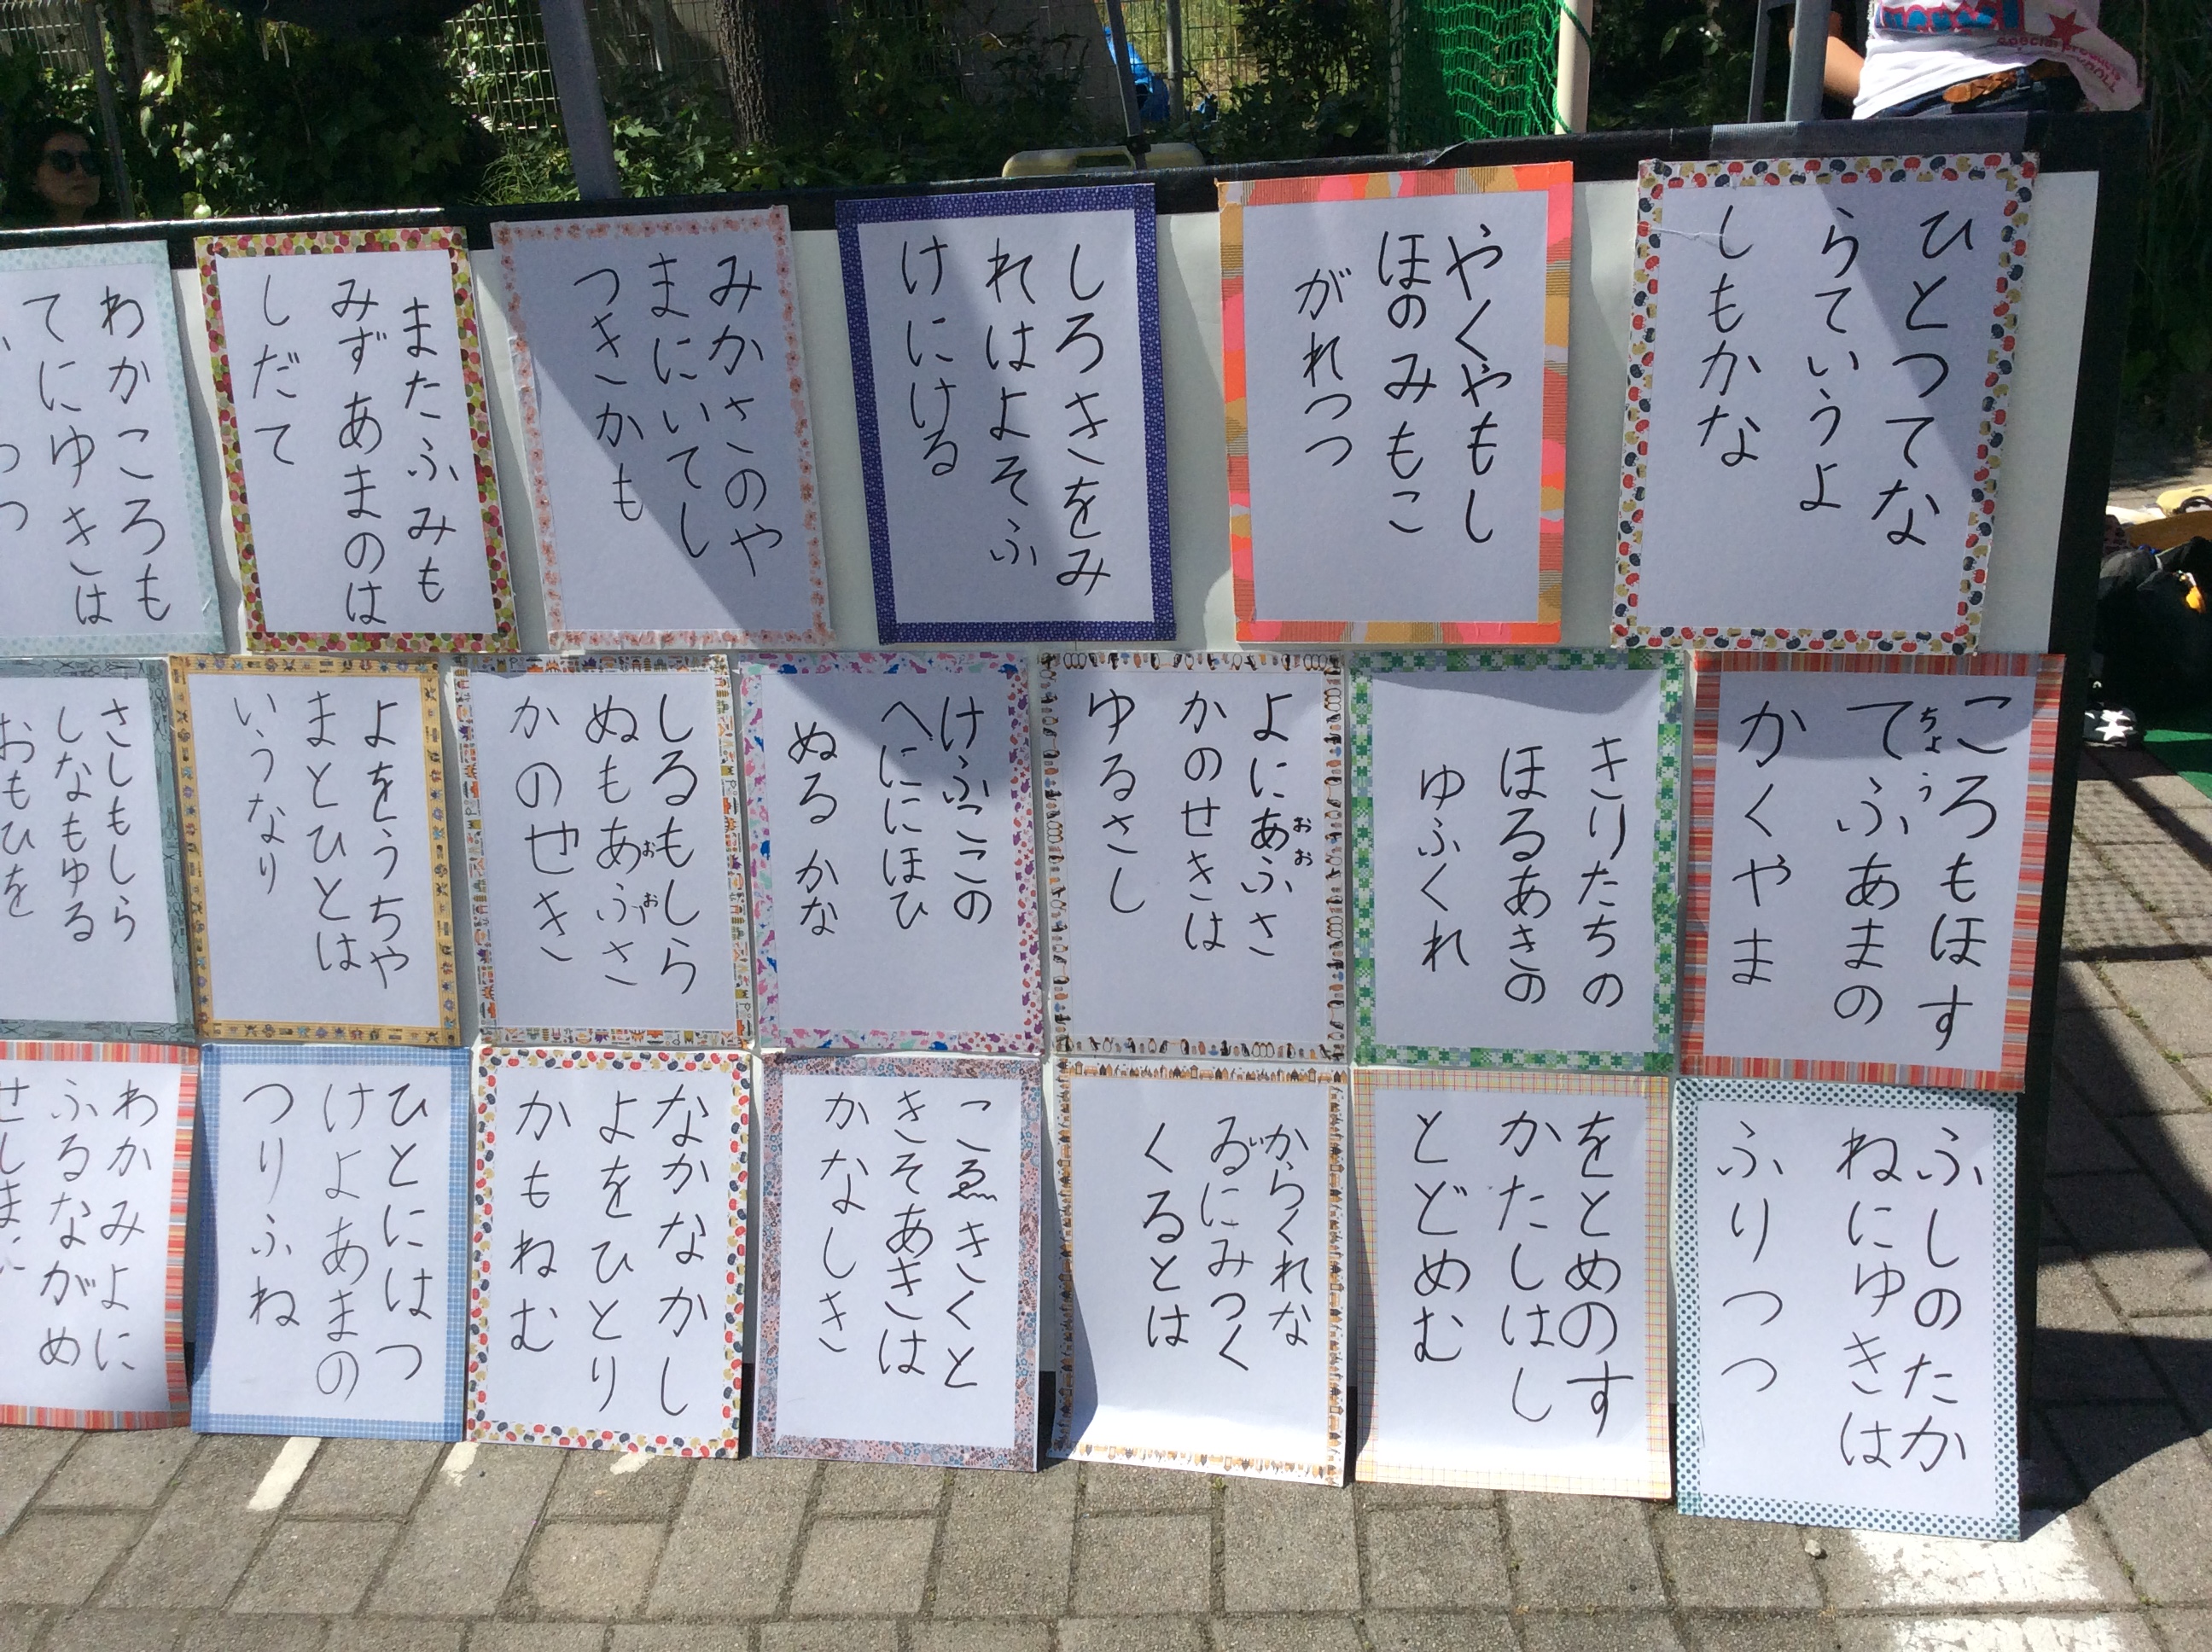 ひとつてな
らていうよ
しもかな
やくやもし
ほのみもこ
がれつつ
しろきをみ
れはよそふ
けにける
みかさのや
まにいてし
つきかも
またふみも
みずあまのは
しだて
わかころも
てにゆきは
ころもほす
ちょう
てふあまの
かくやま
きりたちの
ほるあきの
ゆふくれ
おお
よにあふさ
かのせきは
ゆるさし
けふここの
へににほひ
ぬるかな
しるもしら
おお
ぬもあふさ
かのせき
よをうちや
まとひとは
いうなり
さしもしら
しなもゆる
おもひを
ふしのたか
ねにゆきは
ふりつつ
をとめのす
かたしはし
とどめむ
からくれな
い
ゐにみつく
くるとは
こゑきくと
きそあきは
かなしき
なかなかし
よをひとり
かもねむ
ひとにはつ
けよあまの
つりふね
わかみよに
ふるながめ